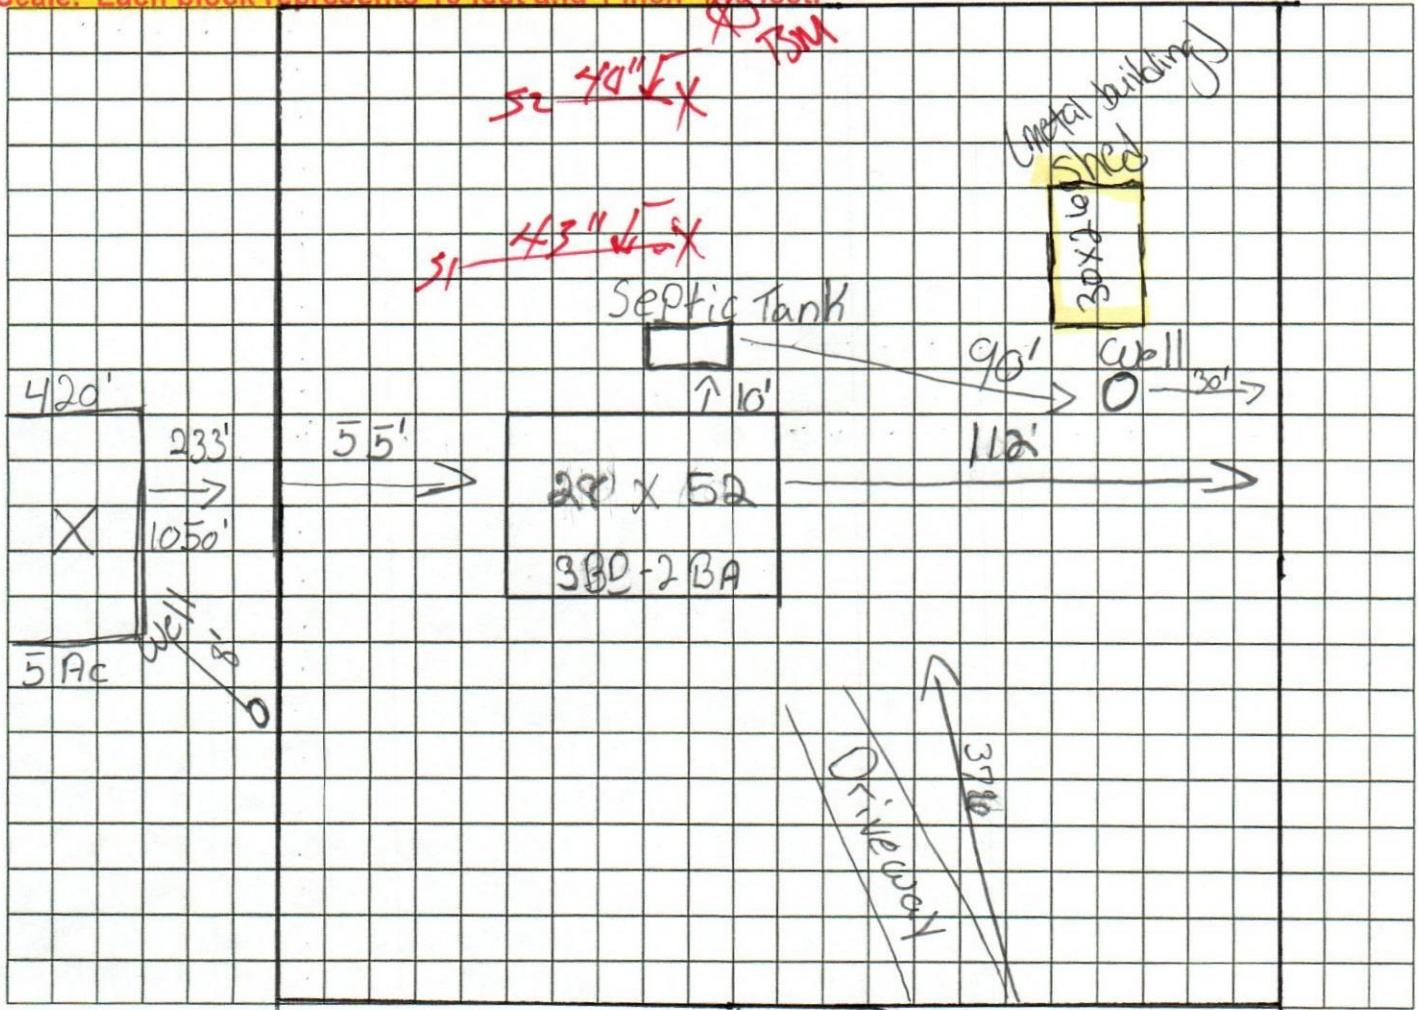 Scale: Each block represents 10 feet and 1 inch
BM
S2 40"
(metal building)
Shed
30x20
S1 43"
Septic Tank
90'
Well
30'
420'
10'
233'
55'
112'
1050'
28' x 52
3BD-2BA
Well
8'
5 Ac
Driveway